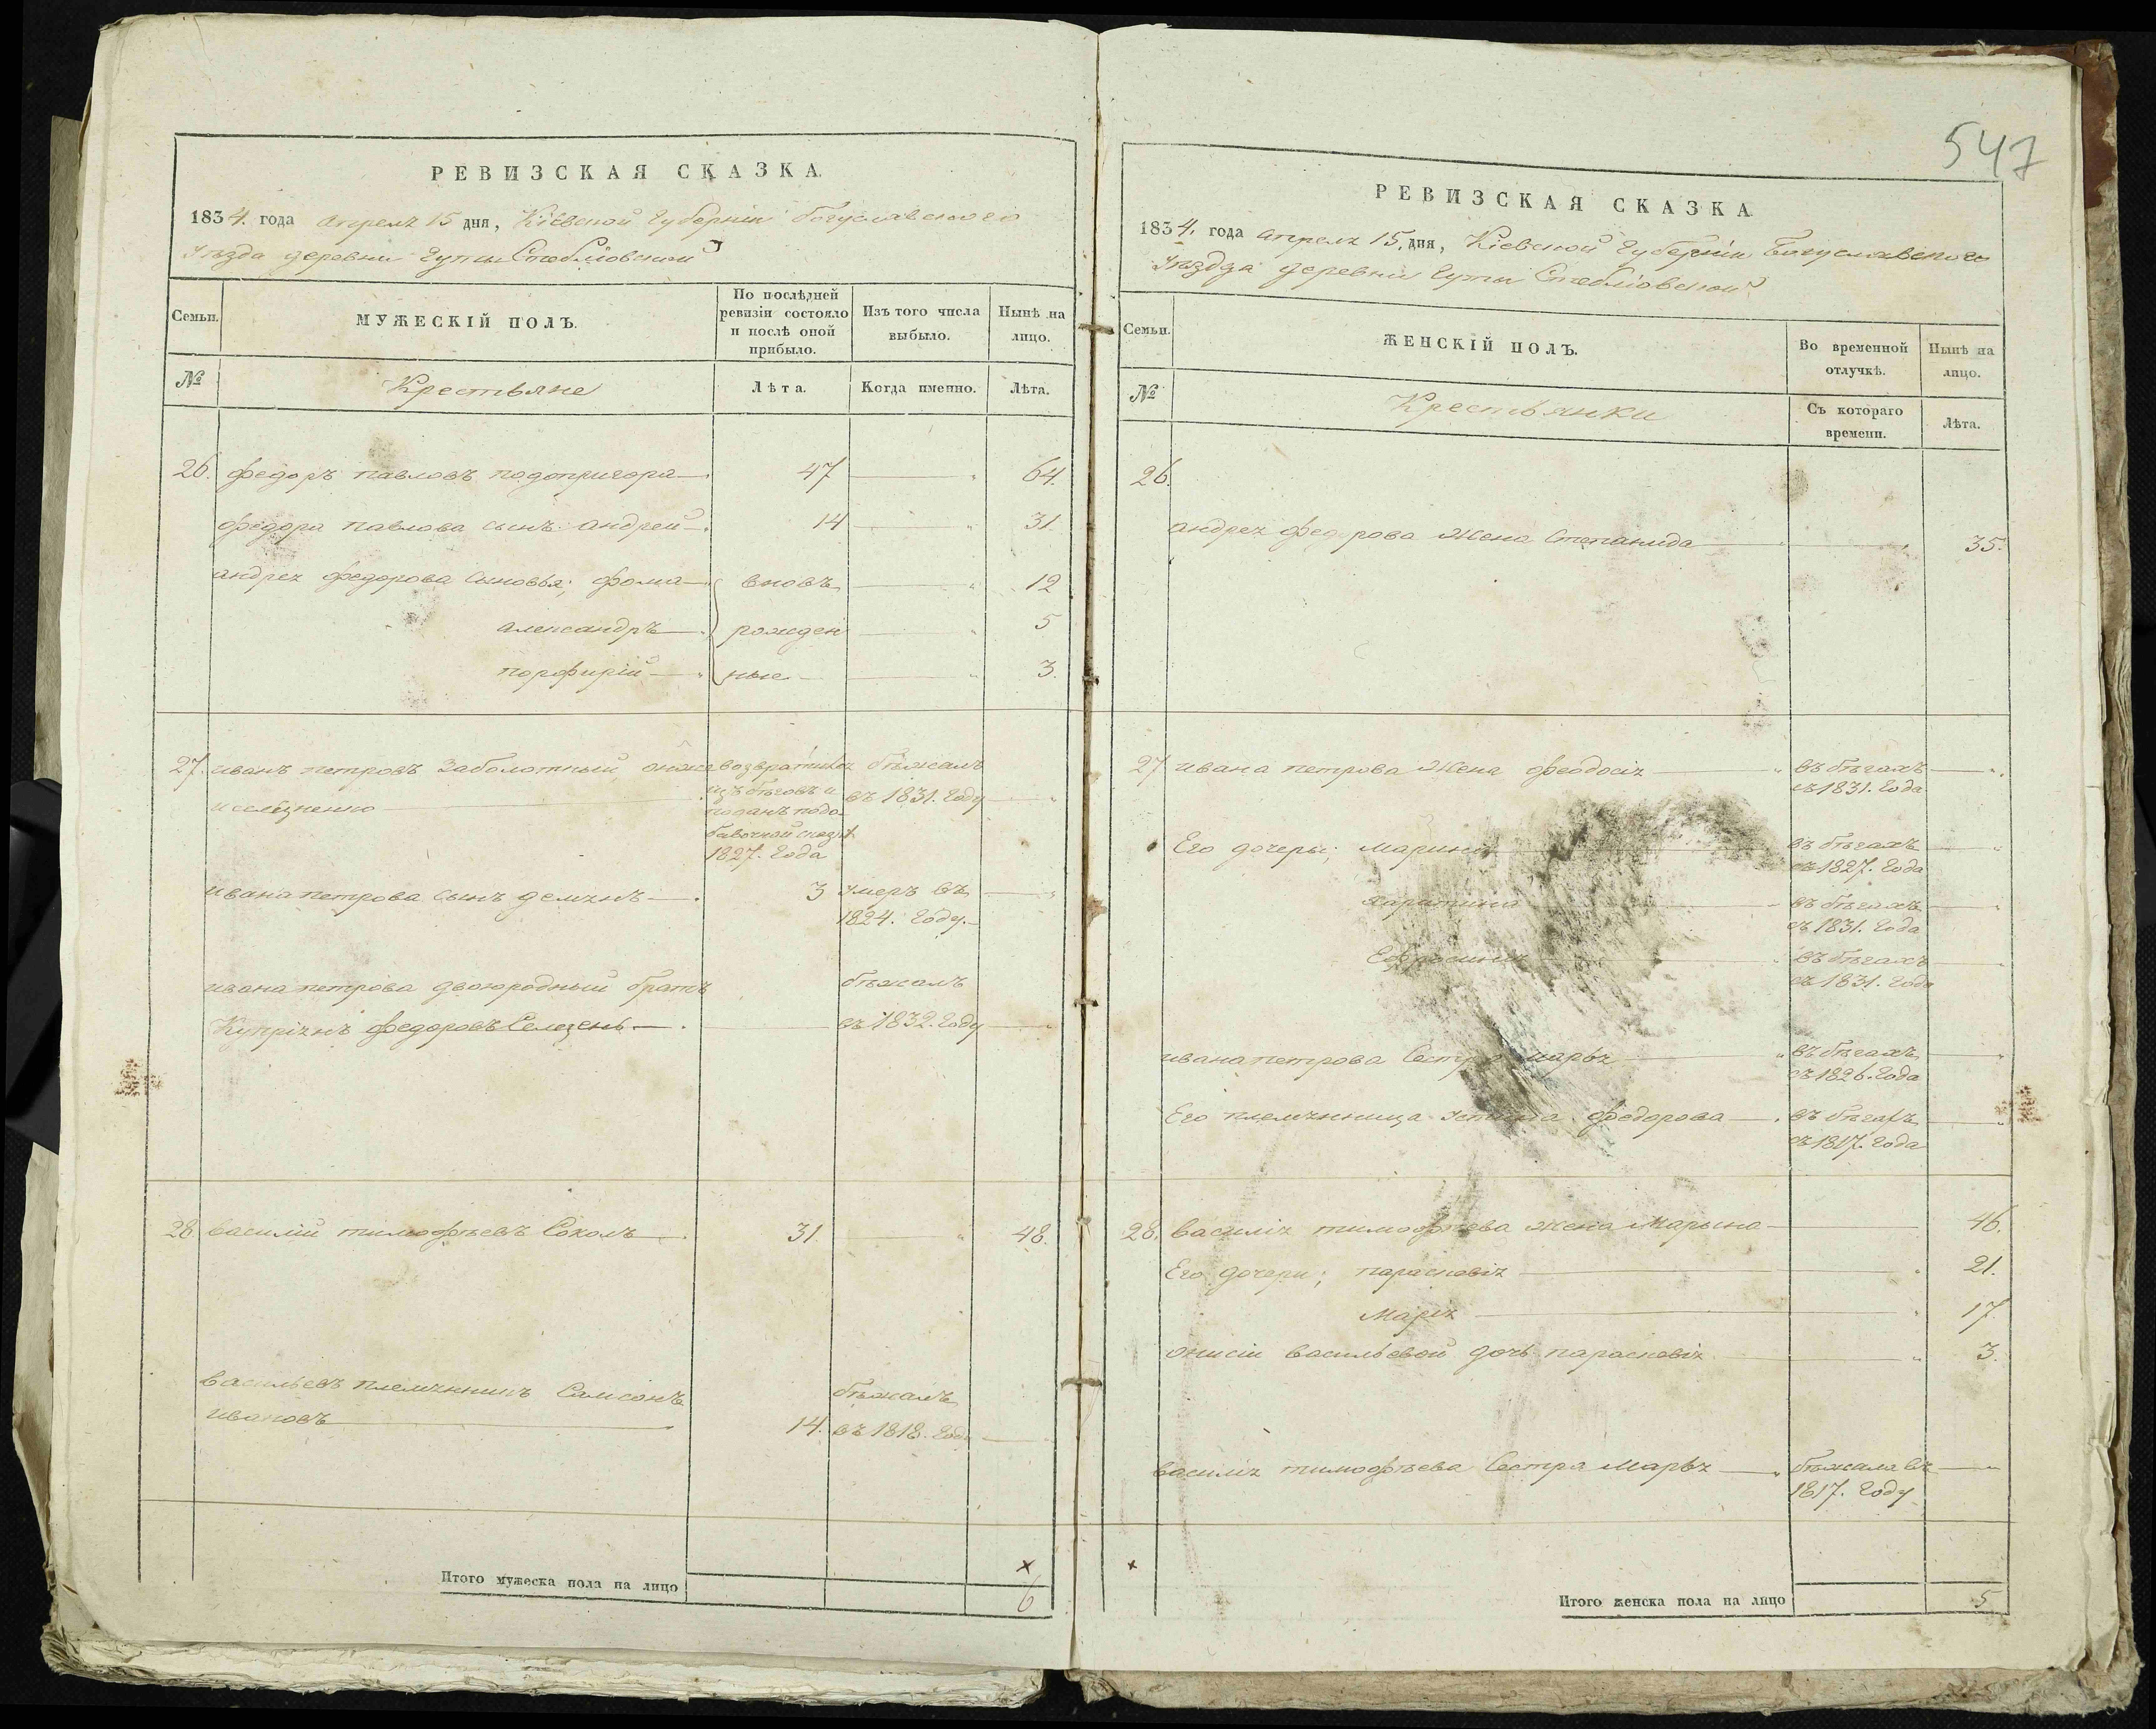 547
РЕВИЗСКАЯ СКАЗКА.
1834. года апреля 15 дня, Кіевской Губерніи Богуславского
уѣзда деревни Гуты Стебліовской
Семьи.
МУЖЕСКІЙ ПОЛЪ.
По послѣдней
ревизіи состояло
и послѣ оной
прибыло.
Изъ того числа
выбыло.
Нынѣ на
лицо.
№
Крестьяне
Лѣта.
Когда именно.
Лѣта.
26. федоръ павловъ подопригора 47 64.
федора павлова сынъ андрей 14 31.
андрея федорова сыновья; фома вновь 12
александръ рожден 5
порфирій ные 3.
27. иванъ петровъ Заболотный, онже возвратился бѣжалъ
изъ бѣговъ и въ 1831. Году
поданъ подо
бавочной сказкѣ
1827. Года
ивана петрова сынъ демянъ 3 умеръ въ
1824. Году.
ивана петрова двоюродный братъ бѣжалъ
Купріянъ федоровъ Селезень въ 1832. Году
28 василій тимофѣевъ Соколъ 31. 48.
васильевъ племянникъ Самсонъ бѣжалъ
ивановъ 14. въ 1818. Году
Итого мужеска пола на лицо 6
РЕВИЗСКАЯ СКАЗКА
1834. года апреля 15. дня, Кіевской Губерніи Богуславского
уѣзда деревни Гуты Стебліовской
Семьи.
ЖЕНСКІЙ ПОЛЪ.
Во временной
отлучкѣ.
Нынѣ на
лицо.
№
Крестьянки
Съ котораго
времени.
Лѣта.
26.
андрея федорова жена Степанида 35.
27 ивана петрова жена феодосія въ бѣгахъ
съ 1831. Года
Его дочеры; Марина въ бѣгахъ
съ 1827. Года
харитина въ бѣгахъ
съ 1831. Года
Евросинія въ бѣгахъ
съ 1831. Года
ивана петрова Сестра марья въ бѣгахъ
съ 1826. Года
Его племянница устина федорова въ бѣгахъ
съ 1817. Года
28. василія тимофѣева жена Марьяна 46.
Его дочери; парасковія 21.
Марія 17.
онисіи васильевой дочь парасковія 3.
василія тимофѣева Сестра Марья бѣжала въ
1817. Году
Итого женска пола на лицо 5